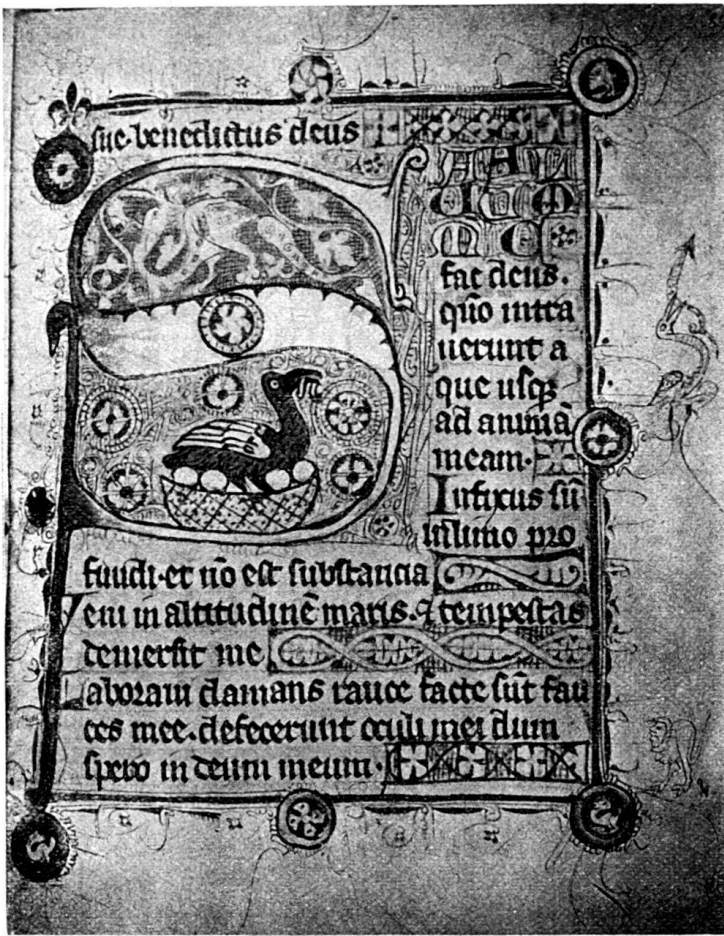 sue benedictus deus
S
fac deus.
qūo intra
uerunt a
que usqꝫ
ad animā
meam.
Infixus sū
in limo pro
fundi. et nō est substancia
Veni in altitudinē maris. ⁊ tempestas
demersit me
Laboraui clamans rauce facte sūt fau
ces mee. defecerunt oculi mei dum
spero in deum meum.